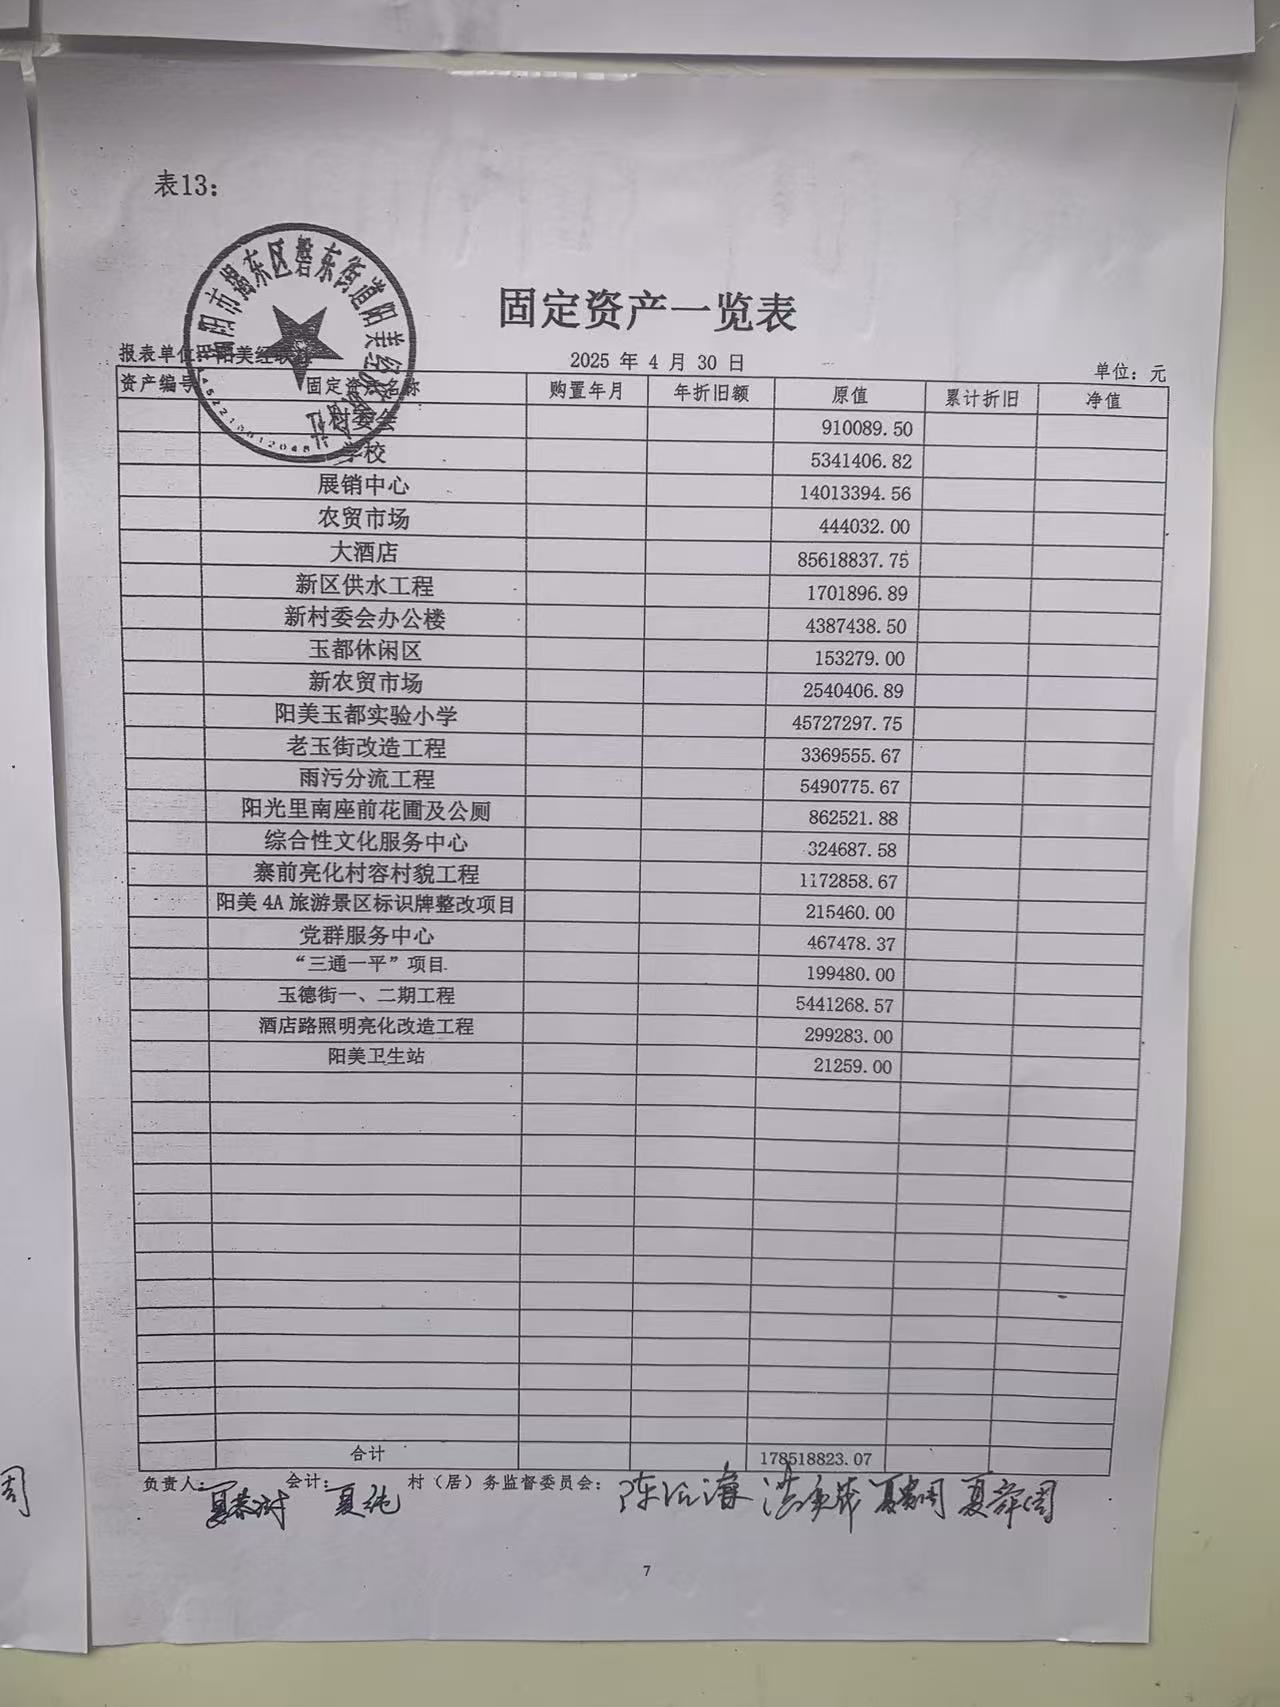 表13：
揭阳市揭东区磐东街道阳美经
固定资产一览表
2025 年 4 月 30 日
报表单位：阳美经联社 单位：元
资产编号 固定资产名称 购置年月 年折旧额 原值 累计折旧 净值
村委会 910089.50
学校 5341406.82
展销中心 14013394.56
农贸市场 444032.00
大酒店 85618837.75
新区供水工程 1701896.89
新村委会办公楼 4387438.50
玉都休闲区 153279.00
新农贸市场 2540406.89
阳美玉都实验小学 45727297.75
老玉街改造工程 3369555.67
雨污分流工程 5490775.67
阳光里南座前花圃及公厕 862521.88
综合性文化服务中心 324687.58
寨前亮化村容村貌工程 1172858.67
阳美 4A 旅游景区标识牌整改项目 215460.00
党群服务中心 467478.37
“三通一平”项目 199480.00
玉德街一、二期工程 5441268.57
酒店路照明亮化改造工程 299283.00
阳美卫生站 21259.00
合计 178518823.07
负责人： 会计：夏纯 村（居）务监督委员会： 夏舜周
7
周